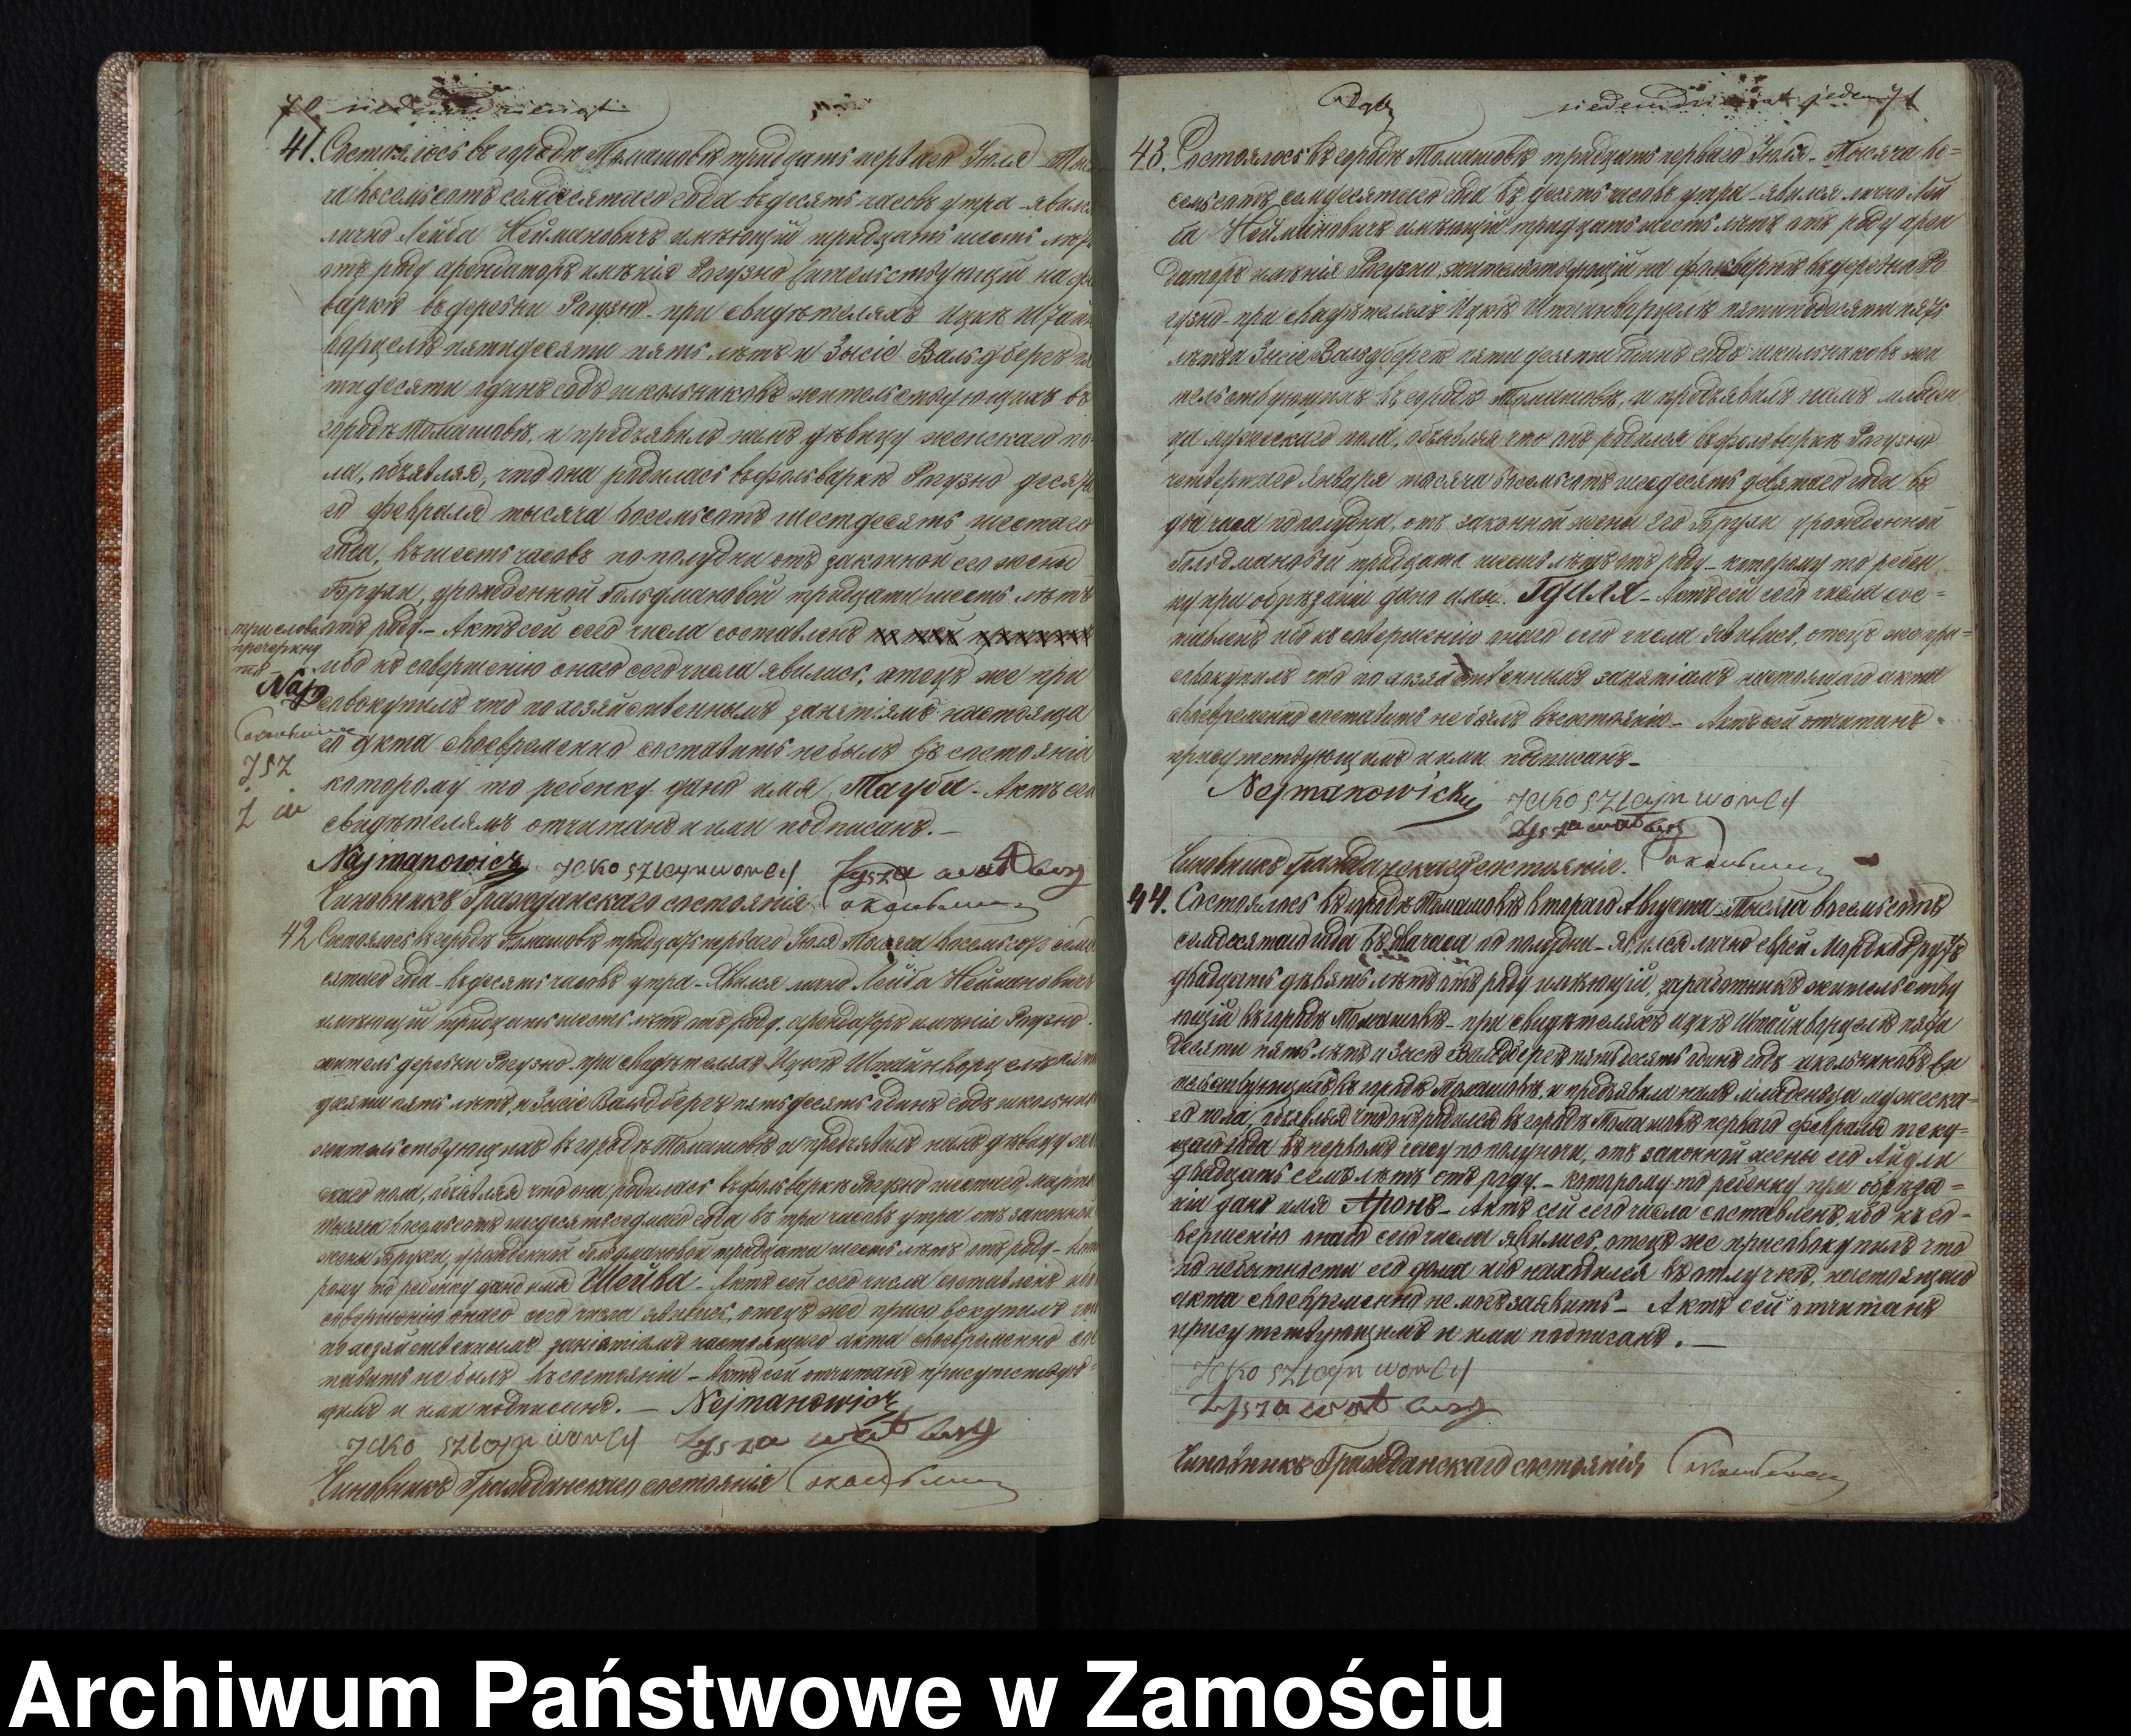 70 siedemdziesiąt
41. Состоялось въ городѣ Томашовѣ тридцать перваго Іюля Тыся
ча восемьсотъ семдесятаго года въ десять часовъ утра – явился
лично Лейба Неймановичъ имѣющій тридцать шесть лѣтъ
отъ роду арендаторъ имѣнія Рогузно жительствующій на фоль
варкѣ въ деревни Рогузно – при свидѣтеляхъ Ицкѣ Штайн
ворцелѣ пятидесяти пять лѣтъ и Зысіе Вальдберег пя
тидесяти одинъ годъ школьниковъ жительствующихъ въ
городѣ Томашовѣ, и предъявилъ намъ дѣвицу женскаго по
ла, объявляя, что она родилась въ фольваркѣ Рогузно десята
го февраля тысяча восемьсотъ шестдесять шестаго
года, въ шесть часовъ по полудни отъ законной его жены
Брухи, урожденной Гольдмановой тридцати шесть лѣтъ
отъ роду. – Актъ сей сего числа составленъ
ибо къ совершенію онаго сего числа явились, отецъ же при
совокупилъ что по хозяйственнымъ занятіямъ настояща
го акта своевременно составить не былъ въ состояніи
которому то ребенку дано имя Тауба – Актъ сей
свидѣтелямъ отчитанъ и ими подписанъ. –
три слова
прочеркну
то –
Najm
JSZ
Z w
Najmanowicz Jcko Sztaynworcl Zysza Waldberg
Чиновникъ Гражданскаго состоянія
42 Состоялось въ городѣ Томашовѣ тридцать перваго Іюля Тысяча восемьсотъ семде
сятаго года – въ десять часовъ утра – Явился лично Лейба Неймановичъ
имѣющій тридцать шесть лѣтъ отъ роду, арендаторъ имѣнія Рогузно
житель деревни Рогузно при свидѣтеляхъ Ицкѣ Штайнворцелѣ пяти
десяти пять лѣтъ, и Зысіе Вальдберег пятьдесять одинъ годъ школьник
жительствующихъ въ городѣ Томашовѣ и предъявилъ намъ дѣвицу жен
скаго пола, объявляя что она родилась въ фольваркѣ Рогузно шестаго марта
тысяча восемьсотъ шесдесять седмаго года въ три часовъ утра отъ законной
жены Брухи, урожденной Гольдмановой тридцати шесть лѣтъ отъ роду – кото
рому то ребенку дано имя Шейва – Актъ сей сего числа составленъ ибо
совершенію онаго сего числа явились, отецъ же присовокупилъ что
по хозяйственнымъ занятіямъ настоящаго акта своевременно сос
тавить не былъ въ состояніи – Актъ сей отчитанъ присутствую=
щимъ и ими подписанъ. – Nejmanowicz
Jcko Sztaynworcl Zysza Waldberg
Чиновникъ Гражданскаго состоянія
siedemdziesiąt jeden 71
43. Состоялось въ городѣ Томашовѣ тридцать перваго Іюля – Тысяча во=
семьсотъ семдесятаго года въ десять часовъ утра – явился лично Лей
ба Неймановичъ имѣющій тридцать шесть лѣтъ отъ роду арен
даторъ имѣнія Рогузно, жительствующій на фольваркѣ въ деревни Ро
гузно – при свидѣтеляхъ Ицкѣ Штоинворцелѣ пятипдесяти пять
лѣтъ и Зысіе Вальдберег пяти десяти одинъ годъ школьниковъ жи
тельствующихъ въ городѣ Томашовѣ, и предъявилъ намъ младен
ца мужескаго пола, объявляя что онъ родился въ фольваркѣ Рогузно
четвертаго Января тысяча восемьсотъ шесдесять девятаго года въ
два часа по полудни, отъ законной жены его Брухи урожденной
Гольдмановой тридцати шесть лѣтъ отъ роду – которому то ребен
ку при обрѣзаніи дано имя Гдиля – Актъ сей сего числа сос=
тавленъ ибо къ совершенію онаго сего числа явились, отецъ же при=
совокупилъ что по хозяйственнымъ занятіямъ настоящаго акта
своевременно составить не былъ въ состояніи – Актъ сей отчитанъ
присутствующимъ и ими подписанъ –
Nejmanowicz Jcko Sztaynworcl
Zysza Waldberg
Чиновникъ Гражданскаго состоянія.
44. Состоялось въ городѣ Томашовѣ втораго Августа – Тысяча восемьсотъ
семдесятаго года въ два часа по полудни – явился лично еврей Мордко Друтъ
двадцать девять лѣтъ отъ роду имѣющій, заработникъ жительству
ющій въ городѣ Томашовѣ – при свидѣтеляхъ Ицкѣ Штайнворцелѣ пяти
десяти пять лѣтъ и Зыси Вальдберег пятьдесять одинъ годъ школьниковъ жи
тельствующихъ въ городѣ Томашовѣ, и предъявилъ намъ младенца мужеска=
го пола, объявляя что онъ родился въ городѣ Томашовѣ перваго февраля теку=
щаго года въ первомъ часу по полуночи, отъ законной жены его Айдли
двадцать семь лѣтъ отъ роду. – которому то ребенку при обрѣза=
ніи дано имя Аронъ – Актъ сей сего числа составленъ, ибо къ со=
вершенію онаго сего числа явились, отецъ же присовокупилъ что
по небытности его дома ибо находился въ отлучкѣ, настоящаго
акта своевременно не могъ заявить – Актъ сей отчитанъ
присутствующимъ и ими подписанъ. –
Jcko Sztaynworcl
Zysza Waldberg
Чиновникъ Гражданскаго состоянія
Archiwum Państwowe w Zamościu